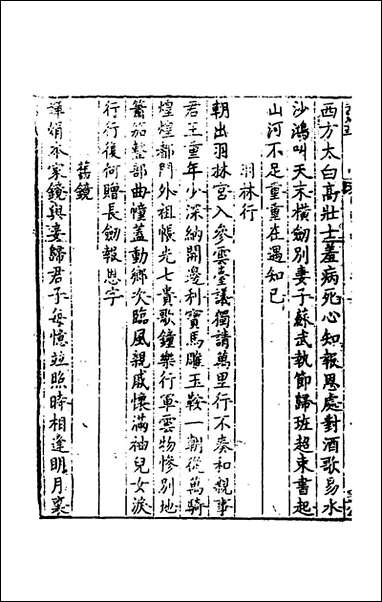 西方太白高壯士羞病死心知報恩處對酒歌易水
沙鴻叫天末橫劒別妻子蘇武執節歸班超束書起
山河不足重重在遇知已
羽林行
朝出羽林宮入參雲臺議獨請萬里行不奏和親事
君王重年少深納開邊利寶馬雕玉鞍一朝從萬騎
煌煌都門外祖帳光七貴歌鐘樂行軍雲物慘別地
簫笳整部曲幢蓋動郷次臨風親戚懷滿袖兒女淚
行行復何贈長劒報恩字
舊鏡
嬋娟本家鏡與妾歸君子每憶竝照時相逢明月裏